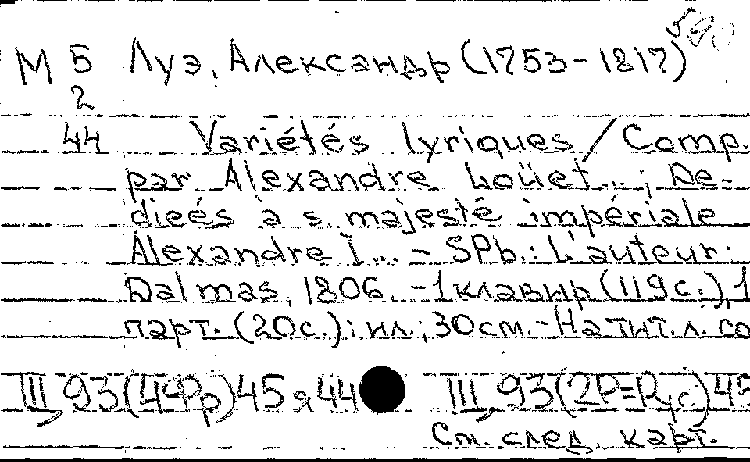 М 5 Луэ, Александр (1753-1817)
2
44 Variétés lyriques / Comp.
par Alexandre Loüet...; De-
dieés à s majesté impériale
Alexandre I... - SPb.: L'auteur:
Dalmas, 1806. - 1 клавир (119 с.), 1
парт. (20с.): ил.; 30см. - На тит. л. со
III, 93(4Фр)45 я44 III, 93(2Р=Рус)45
См. след. карт.